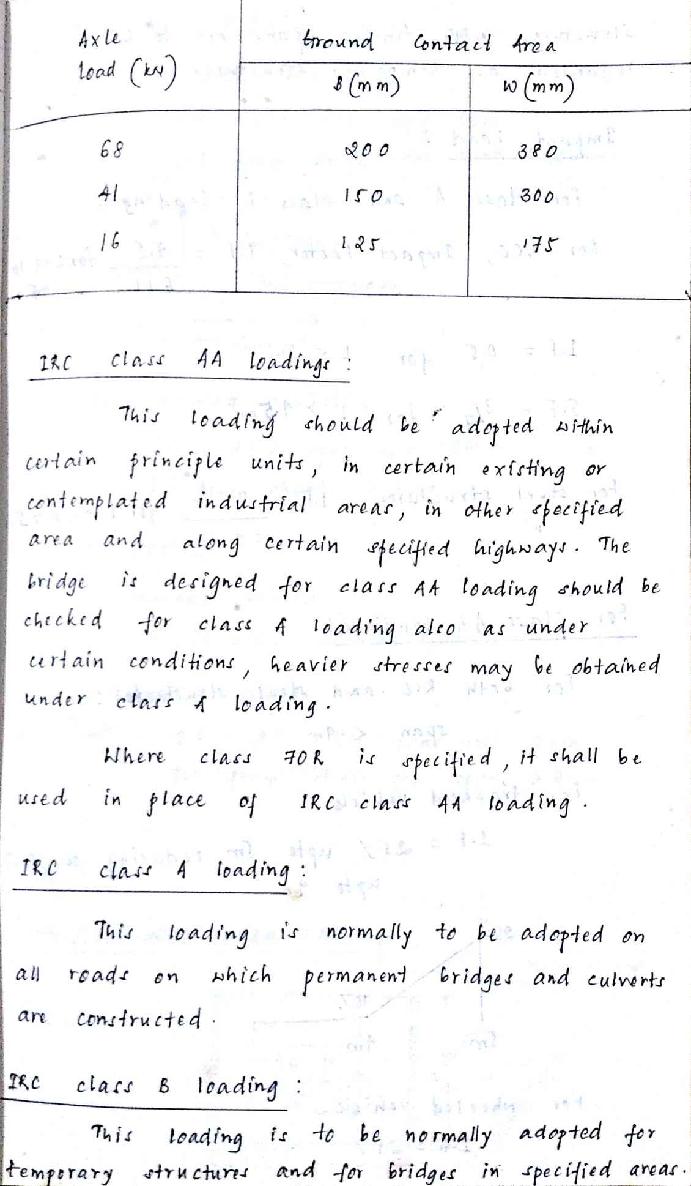 Axle Ground Contact Area
load (kN) B (mm) W (mm)
68 200 380
41 150 300
16 125 175
IRC class AA loadings :
This loading should be adopted within
certain principle units, in certain existing or
contemplated industrial areas, in other specified
area and along certain specified highways. The
bridge is designed for class AA loading should be
checked for class A loading also as under
certain conditions, heavier stresses may be obtained
under class A loading.
Where class 70R is specified, it shall be
used in place of IRC class AA loading.
IRC class A loading :
This loading is normally to be adopted on
all roads on which permanent bridges and culverts
are constructed.
IRC class B loading :
This loading is to be normally adopted for
temporary structures and for bridges in specified areas.